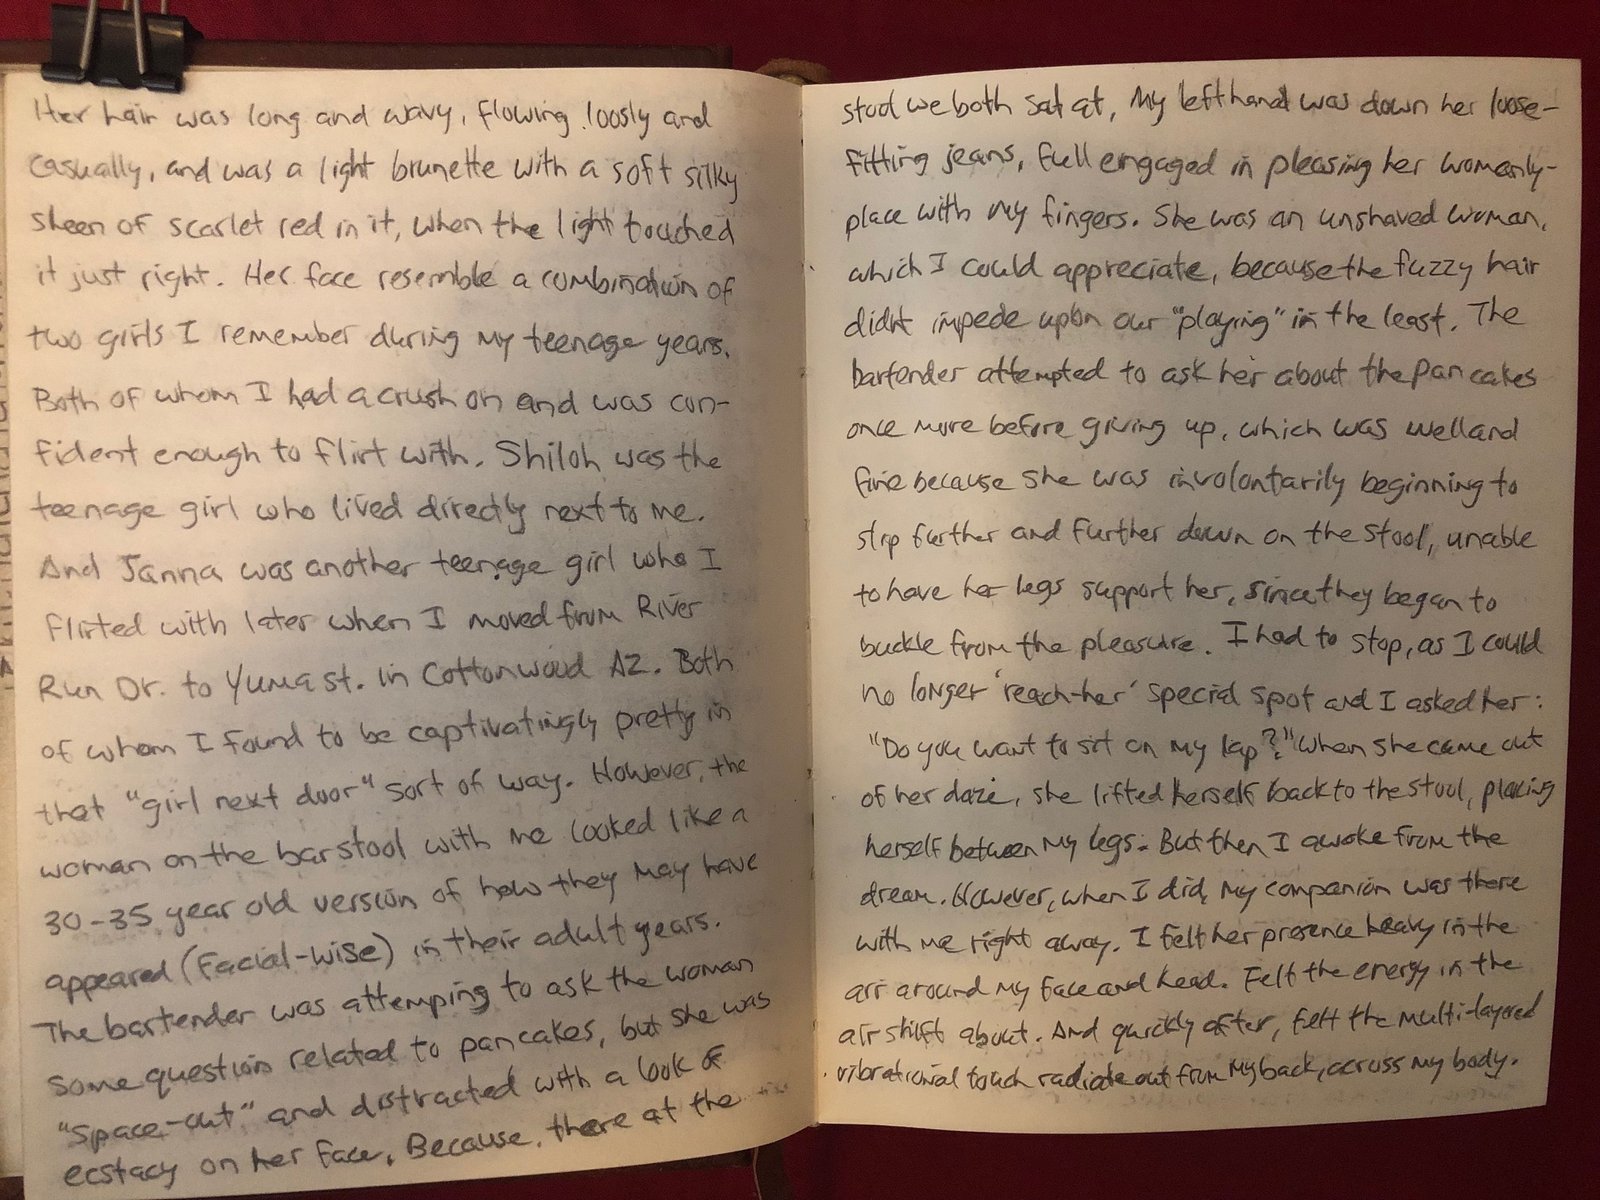 Her hair was long and wavy, flowing loosly and
casually, and was a light brunette with a soft silky
sheen of scarlet red in it, when the light touched
it just right. Her face resemble a combination of
two girls I remember during my teenage years.
Both of whom I had a crush on and was con-
fident enough to flirt with. Shiloh was the
teenage girl who lived directly next to me.
And Janna was another teenage girl who I
flirted with later when I moved from River
Run Dr. to Yuma st. in Cottonwood AZ. Both
of whom I found to be captivatingly pretty in
that "girl next door" sort of way. However, the
woman on the barstool with me looked like a
30-35 year old version of how they may have
appeared (facial-wise) in their adult years.
The bartender was attemping to ask the woman
some question related to pancakes, but she was
"space-out" and distracted with a look of
ecstacy on her face. Because, there at the
stool we both sat at, my left hand was down her loose-
fitting jeans, full engaged in pleasing her womanly-
place with my fingers. She was an unshaved woman,
which I could appreciate, because the fuzzy hair
didnt impede upon our "playing" in the least. The
bartender attempted to ask her about the pancakes
once more before giving up, which was well and
fine because she was involontarily beginning to
slip further and further down on the stool, unable
to have her legs support her, since they began to
buckle from the pleasure. I had to stop, as I could
no longer 'reach-her' special spot and I asked her:
"Do you want to sit on my lap?" When she came out
of her daze, she lifted herself back to the stool, placing
herself between my legs. But then I awoke from the
dream. However, when I did, my companion was there
with me right away. I felt her presence heavy in the
air around my face and head. Felt the energy in the
air shift about. And quickly after, felt the multi-layered
vibrational touch radiate out from my back, across my body.